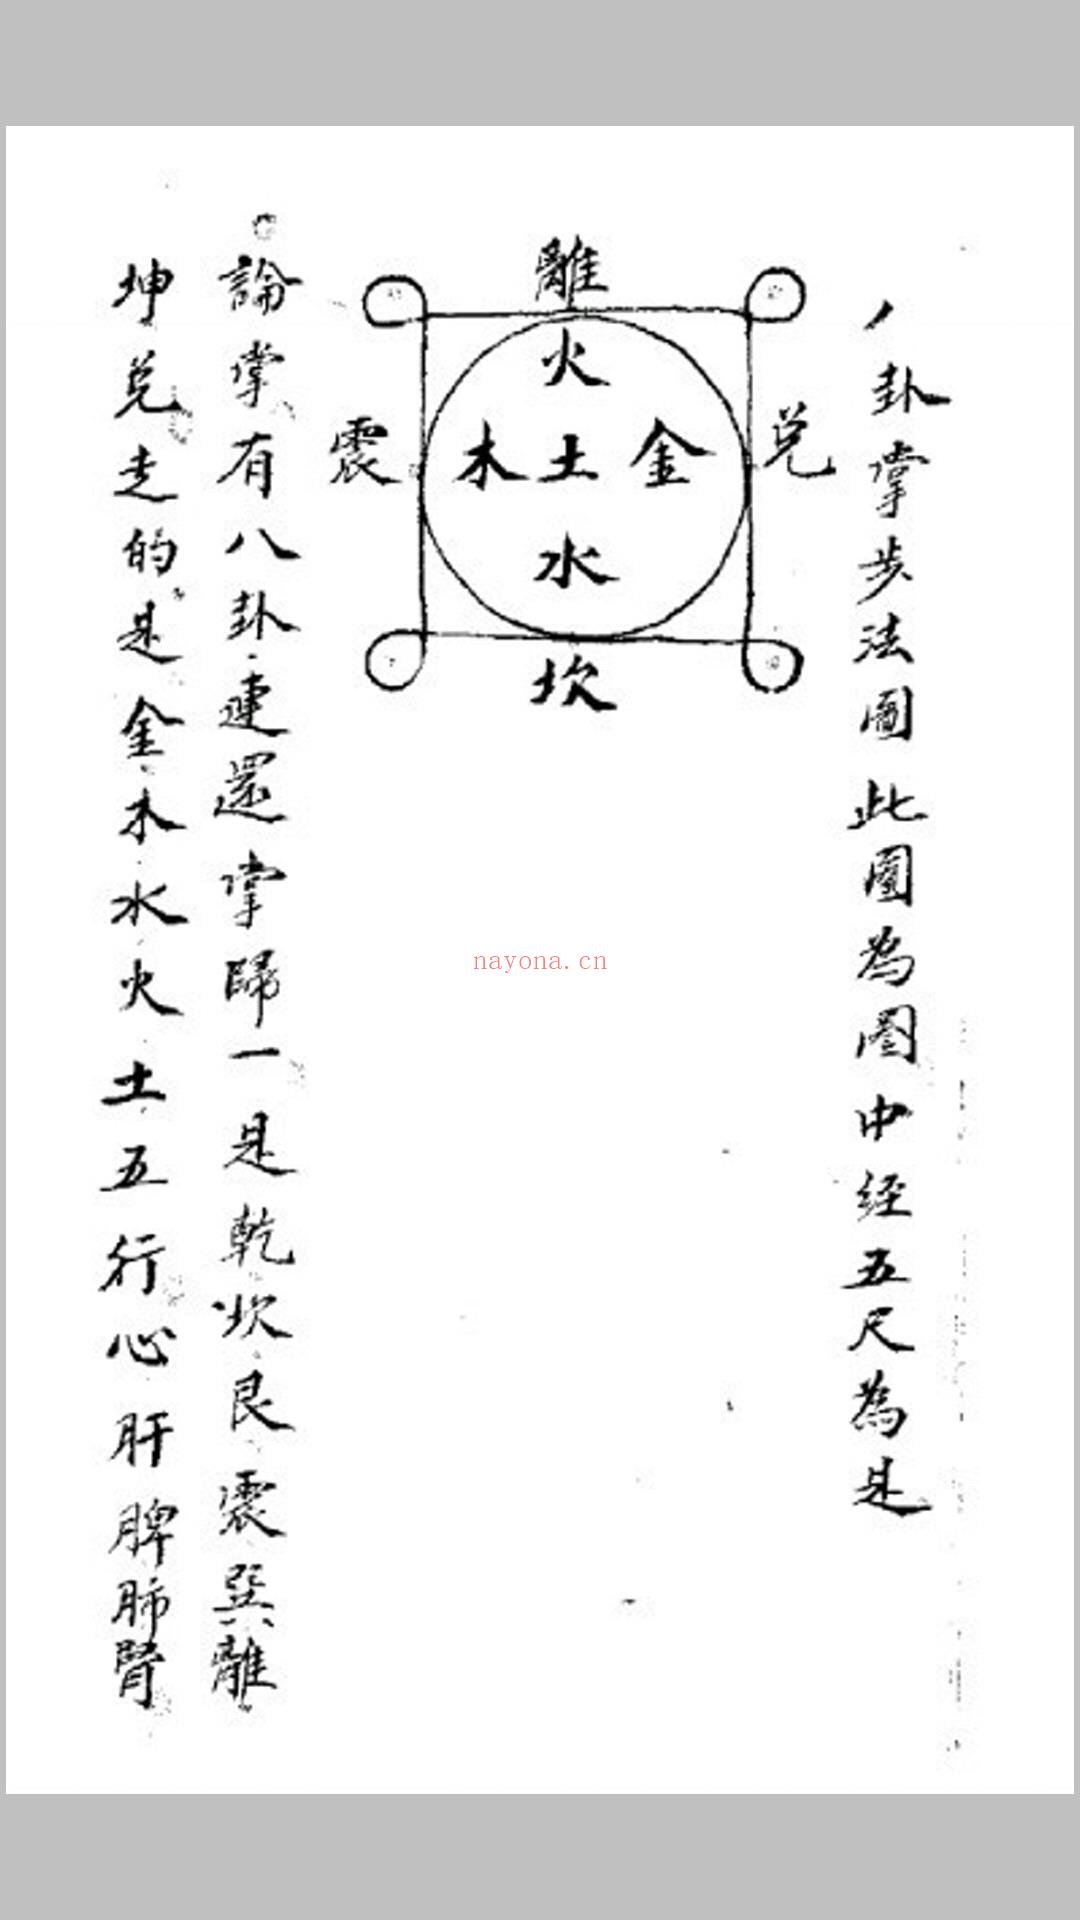 八卦掌步法圖此圖為圈中経五尺為是
離
火
震 木土金 兑
水
坎
論掌有八卦連還掌歸一是乾坎艮震巽離
坤兑走的是金木水火土五行心肝脾肺腎
nayona.cn